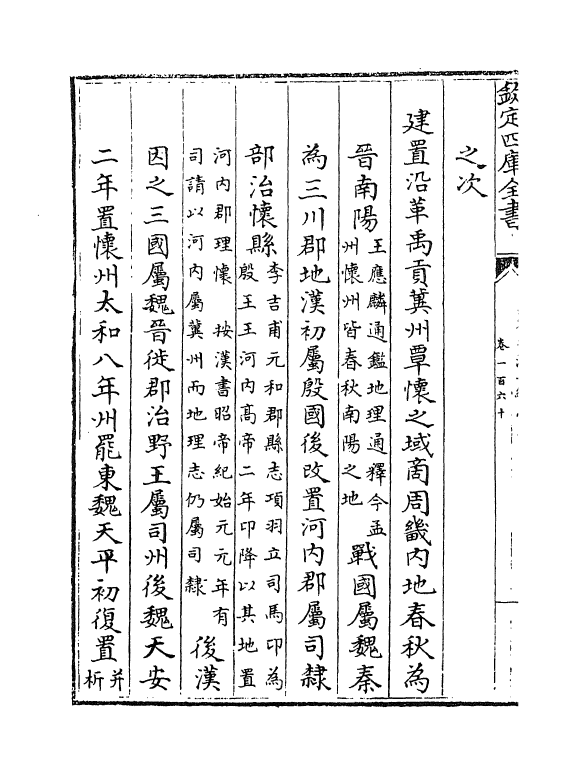 欽定四庫全書
卷一百六十
之次
建置沿革禹貢冀州覃懷之域商周畿内地春秋為
晉南陽王應麟通鑑地理通釋今孟
州懷州皆春秋南陽之地
戰國屬魏秦
為三川郡地漢初屬殷國後改置河内郡屬司隸
部治懷縣李吉甫元和郡縣志項羽立司馬印為
殷王王河内髙帝二年印降以其地置
河内郡理懷　按漢書昭帝紀始元元年有
司請以河内屬冀州而地理志仍屬司隸
後漢
因之三國屬魏晉徙郡治野王屬司州後魏天安
二年置懷州太和八年州罷東魏天平初復置并
析